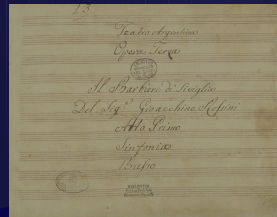 13.
Teatro Argentina
Opera Terza
Il Barbiere di Siviglia
Del Sig.r Gioacchino Rossini
Atto Primo
Sinfonia
Basso